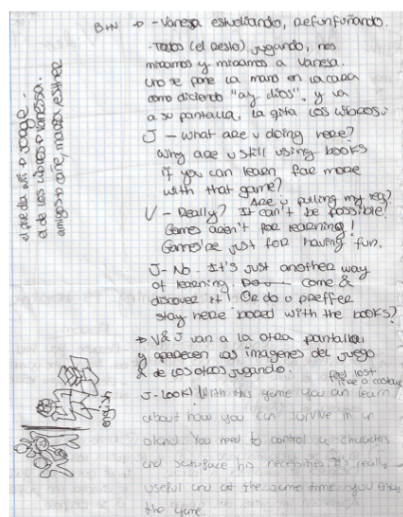 B+N → - Vanesa estudiando, refunfuñando.
- Todos (el resto) jugando, nos
miramos y miramos a Vanesa.
uno se pone la mano en la cara
como diciendo "ay dios", y va
a su pantalla, la quita los libros:
J - What are u doing here?
Why are u still using books
if you can learn far more
with that game?
Are u pulling my leg?
V - Really? It can't be possible!
Games aren't for learning!
Games're just for having fun.
J- No. It's just another way
of learning. come &
discover it! Or do u preffer
stay here bored with the books?
→ V&J van a la otra pantalla
y aparecen las imagenes del juego
& de los otros jugando.
feel lost
like a castaway
J- LOOK! With this game you can learn
about how you can survive in an
island. You need to control a character
and satisface his necessities. It's really
useful and at the same time you enjoy
the game.
el que dia → Jorge.
el de los libros → Vanessa.
amigos → , maria, esther